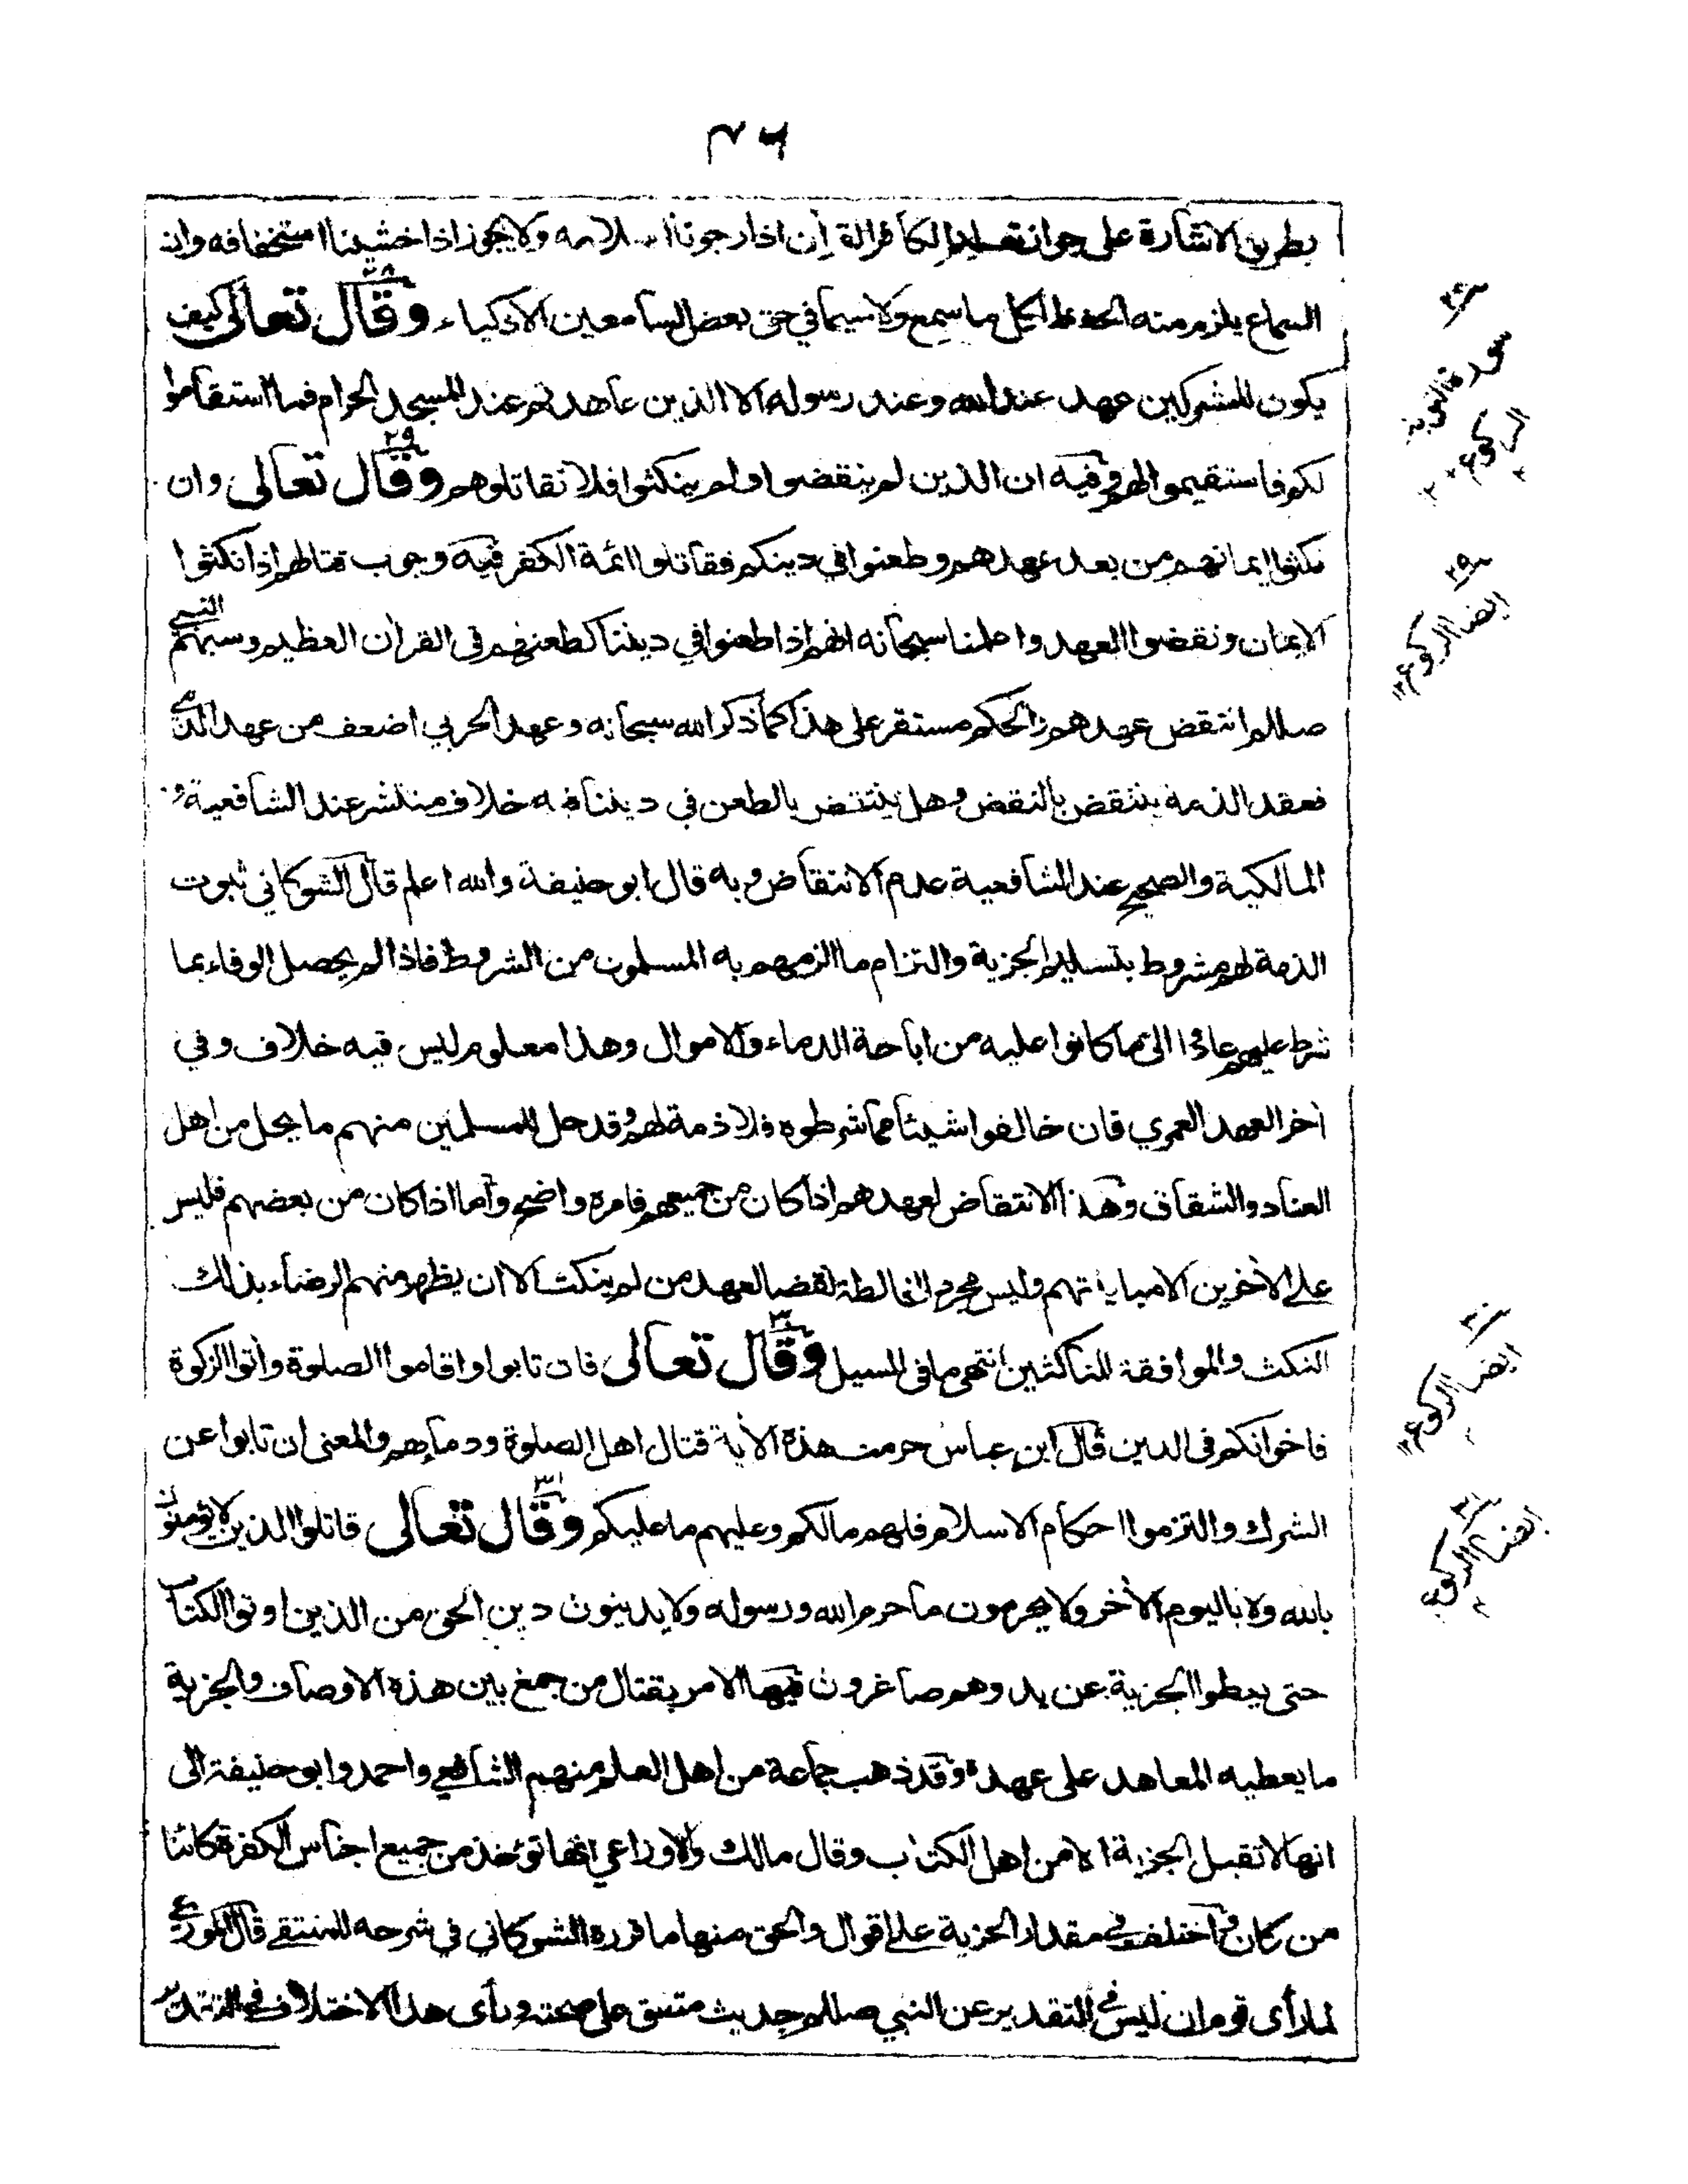 ٣٦
بطريق الاشارة على جواز تعليم الكافر القرآن اذا رجونا اسلامه ولا يجوز اذا خشينا استخفافه وان
السماع يلزم منه الحفظ لكل ما سمع ولا سيما في حق بعض السامعين الاذكياء وقال تعالى كيف
يكون للمشركين عهد عند الله وعند رسوله الا الذين عاهدتم عند المسجد الحرام فما استقاموا
لكم فاستقيموا لهم وفيه ان الذين لم ينقضوا ولم ينكثوا فلا تقاتلوهم وقال تعالى وان
نكثوا ايمانهم من بعد عهدهم وطعنوا في دينكم فقاتلوا ائمة الكفر فيه وجوب قتالهم اذا نكثوا
الايمان ونقضوا العهد واعلمنا سبحانه انهم اذا طعنوا في ديننا كطعنهم في القرآن العظيم وسبهم النبي
صللم انتقض عهدهم والحكم مستقر على هذا كما ذكر الله سبحانه وعهد الحربي اضعف من عهد الذمي
فعقد الذمة ينتقض بالنقض وهل ينتقض بالطعن في ديننا فيه خلاف منتشر عند الشافعية و
المالكية والصحيح عند الشافعية عدم الانتقاض وبه قال ابو حنيفة والله اعلم قال الشوكاني ثبوت
الذمة لهم مشروط بتسليم الجزية والتزام ما الزمهم به المسلمون من الشروط فاذا لم يحصل الوفاء بما
شرط عليهم عادوا الى ما كانوا عليه من اباحة الدماء والاموال وهذا معلوم ليس فيه خلاف وفي
آخر العهد العمري فان خالفوا شيئا مما شرطوه فلا ذمة لهم وقد حل للمسلمين منهم ما يحل من اهل
العناد والشقاق وهذا الانتقاض لعهدهم اذا كان من جميعهم فامره واضح واما اذا كان من بعضهم فليس
على الآخرين الا مباينتهم وليس مجرد المخالطة نقضا لعهد من لم ينكث الا ان يظهر منهم الرضاء بذلك
النكث والموافقة للناكثين انتهى ما في السيل وقال تعالى فان تابوا واقاموا الصلوة واٰتوا الزكوة
فاخوانكم في الدين قال ابن عباس حرمت هذه الآية قتال اهل الصلوة ودماءهم والمعنى ان تابوا عن
الشرك والتزموا احكام الاسلام فلهم ما لكم وعليهم ما عليكم وقال تعالى قاتلوا الذين لا يؤمنون
بالله ولا باليوم الآخر ولا يحرمون ما حرم الله ورسوله ولا يدينون دين الحق من الذين اوتوا الكتاب
حتى يعطوا الجزية عن يد وهم صاغرون فيها الامر بقتال من جمع بين هذه الاوصاف والجزية
ما يعطيه المعاهد على عهده وقد ذهب جماعة من اهل العلم منهم الشافعي واحمد وابو حنيفة الى
انها لا تقبل الجزية الا من اهل الكتاب وقال مالك والاوزاعي انها تؤخذ من جميع اجناس الكفرة كائنا
من كان واختلف في مقدار الجزية على اقوال والحق منها ما قرره الشوكاني في شرحه للمنتقى قال
لما رأى قوم ان ليس في التقدير عن النبي صللم حديث متفق على صحته ورأى هذا الاختلاف في
٢٨
سورة التوبة
الركوع ٢
٢٩
ايضا الركوع ٢
٣٠
ايضا الركوع ٢
٣١
ايضا الركوع ٤